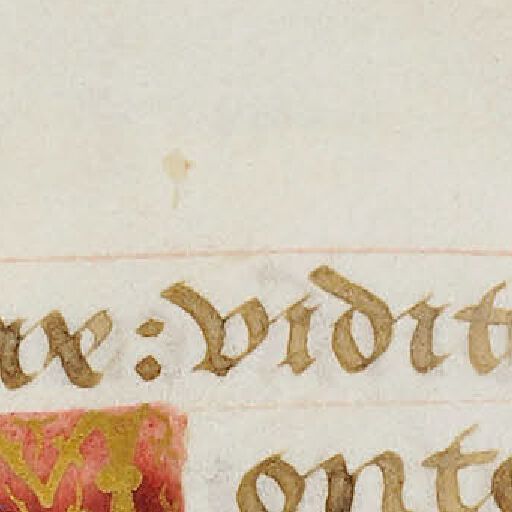 ræ : vidit
onte